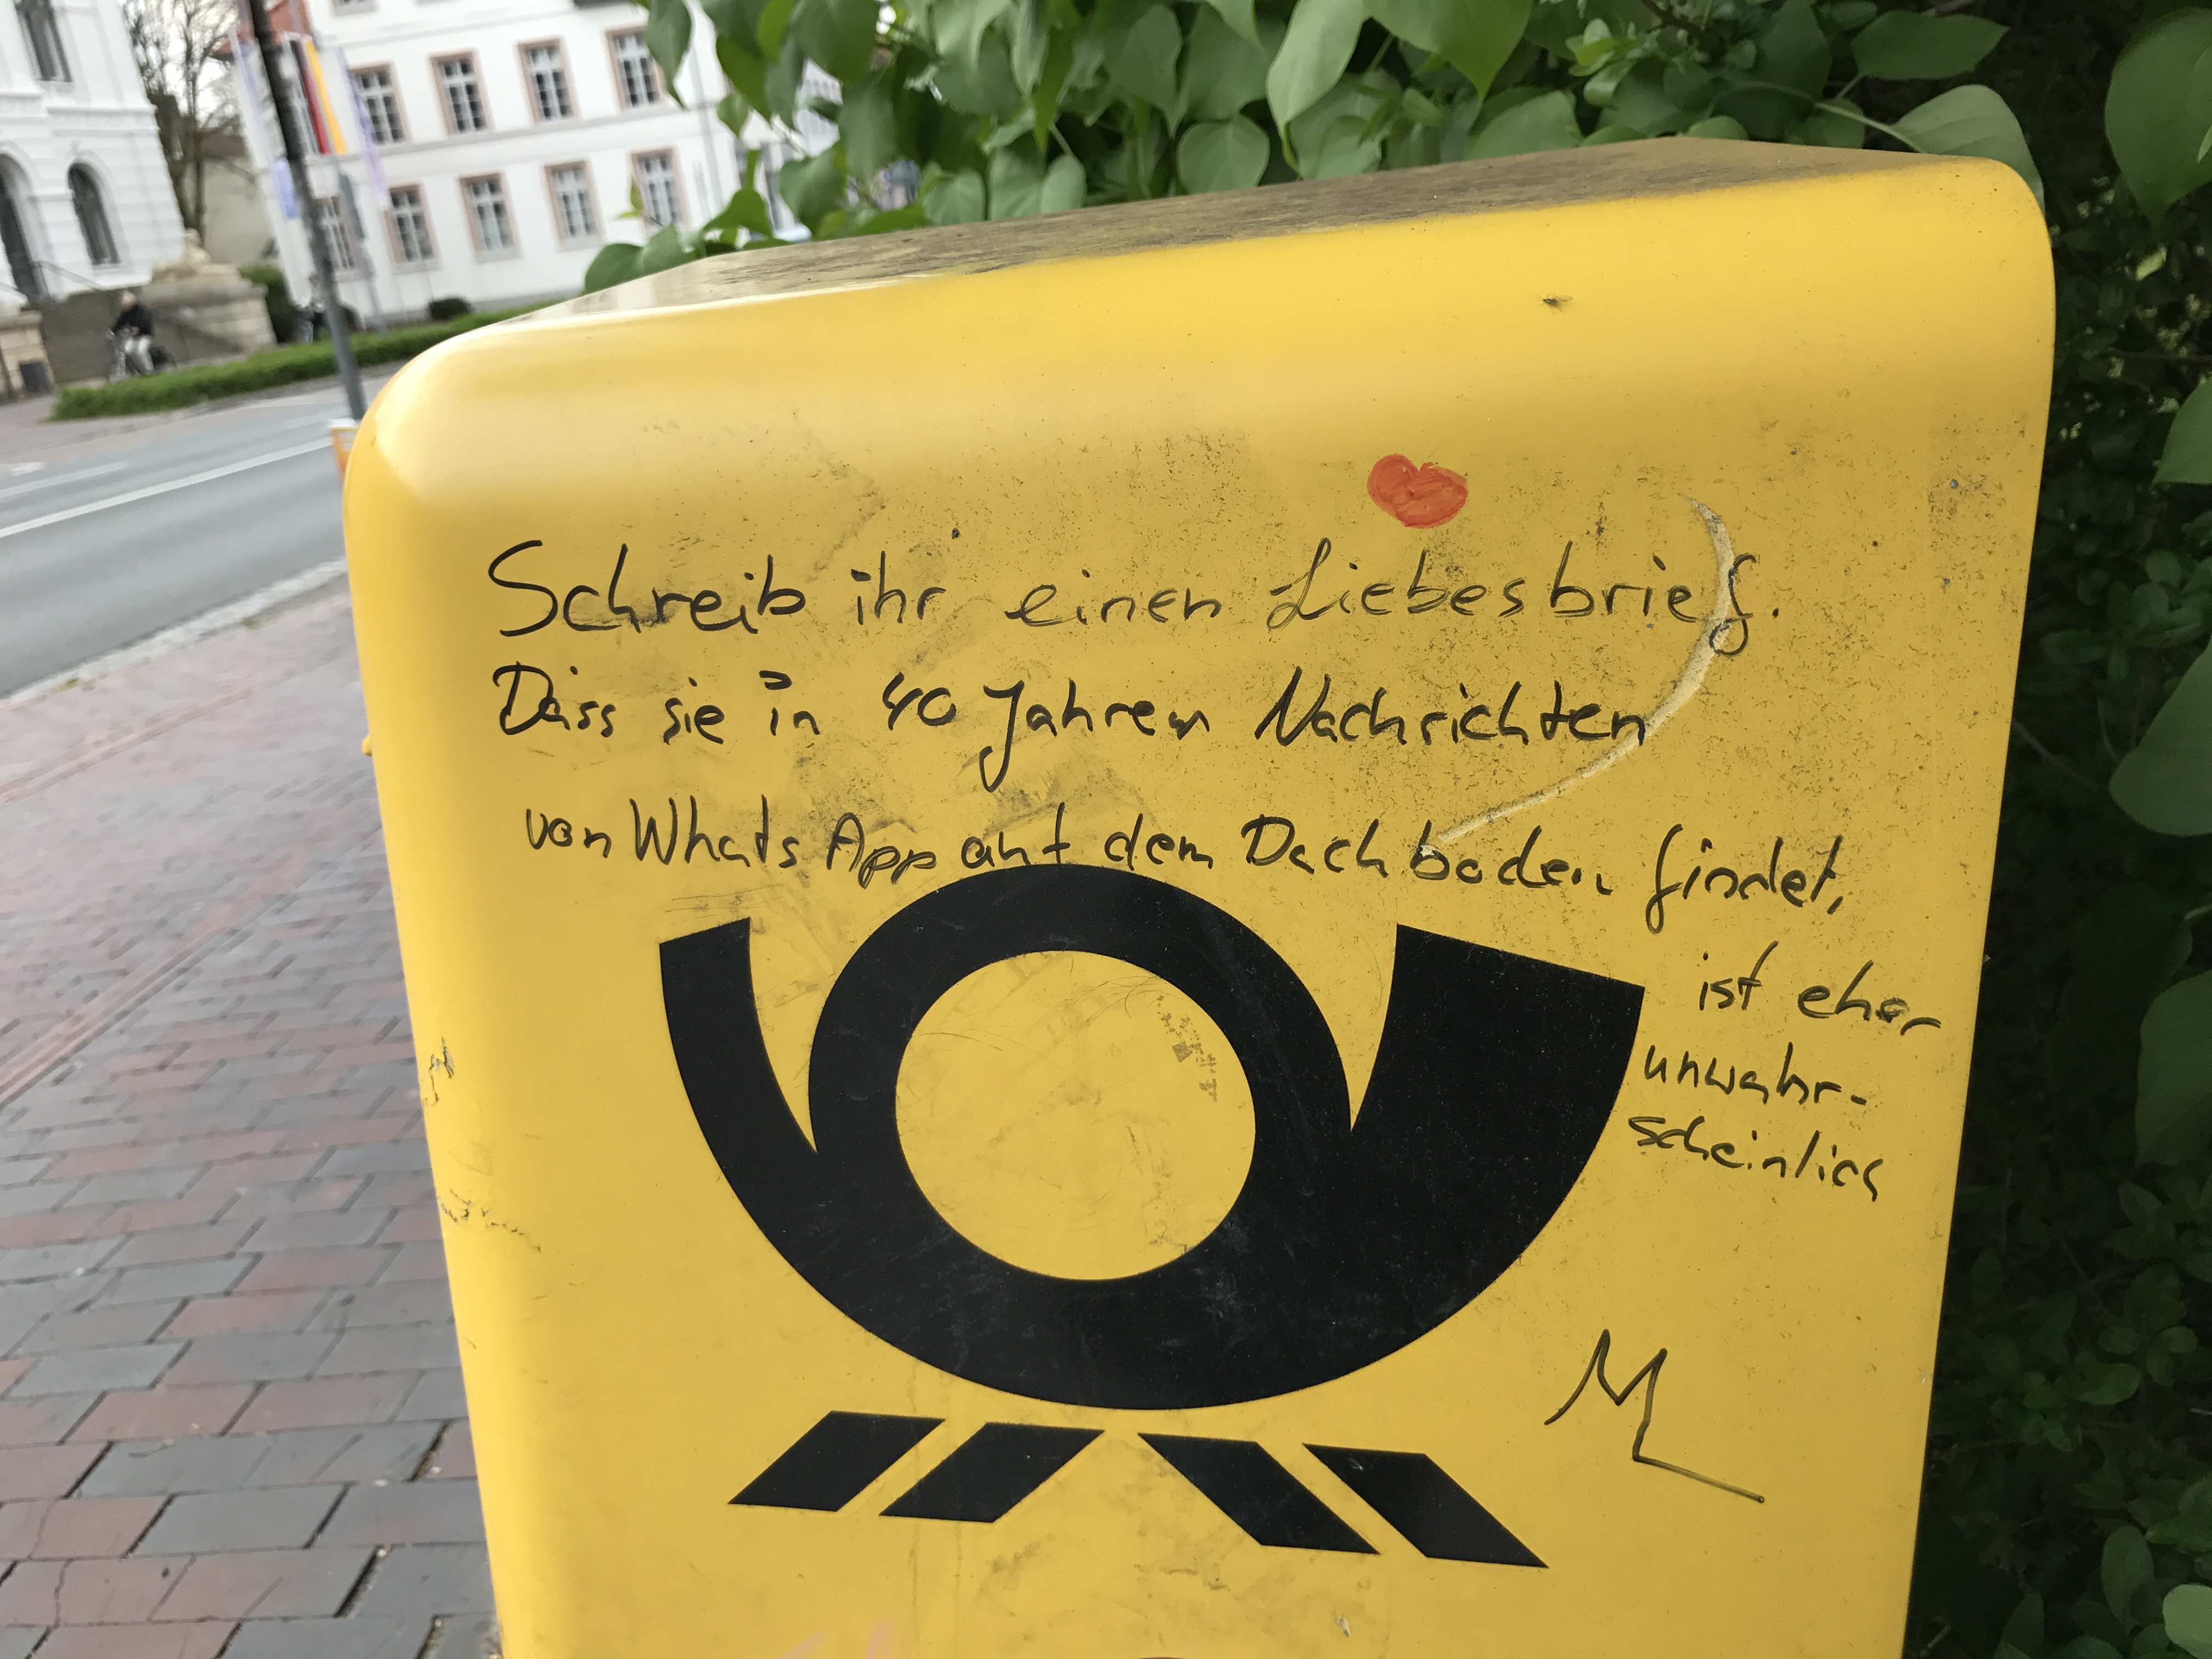 Schreib ihr einen Liebesbrief.
Dass sie in 40 Jahren Nachrichten
von WhatsApp auf dem Dachboden findet,
ist eher
unwahr-
scheinlich
M